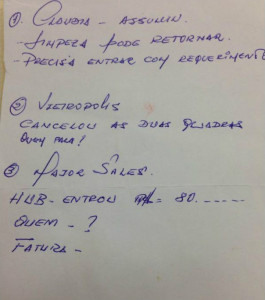 ①. CLAUDIA - ASSUMIU.
- LIMPEZA PODE RETORNAR.
- PRECISA ENTRAR COM REQUERIMENTO
② VIETROPOLIS
CANCELOU AS DUAS QUADRAS
QUEM FALA!
③ MAJOR SALES.
HUB - ENTROU = 80. -----
QUEM - ?
FATURA -